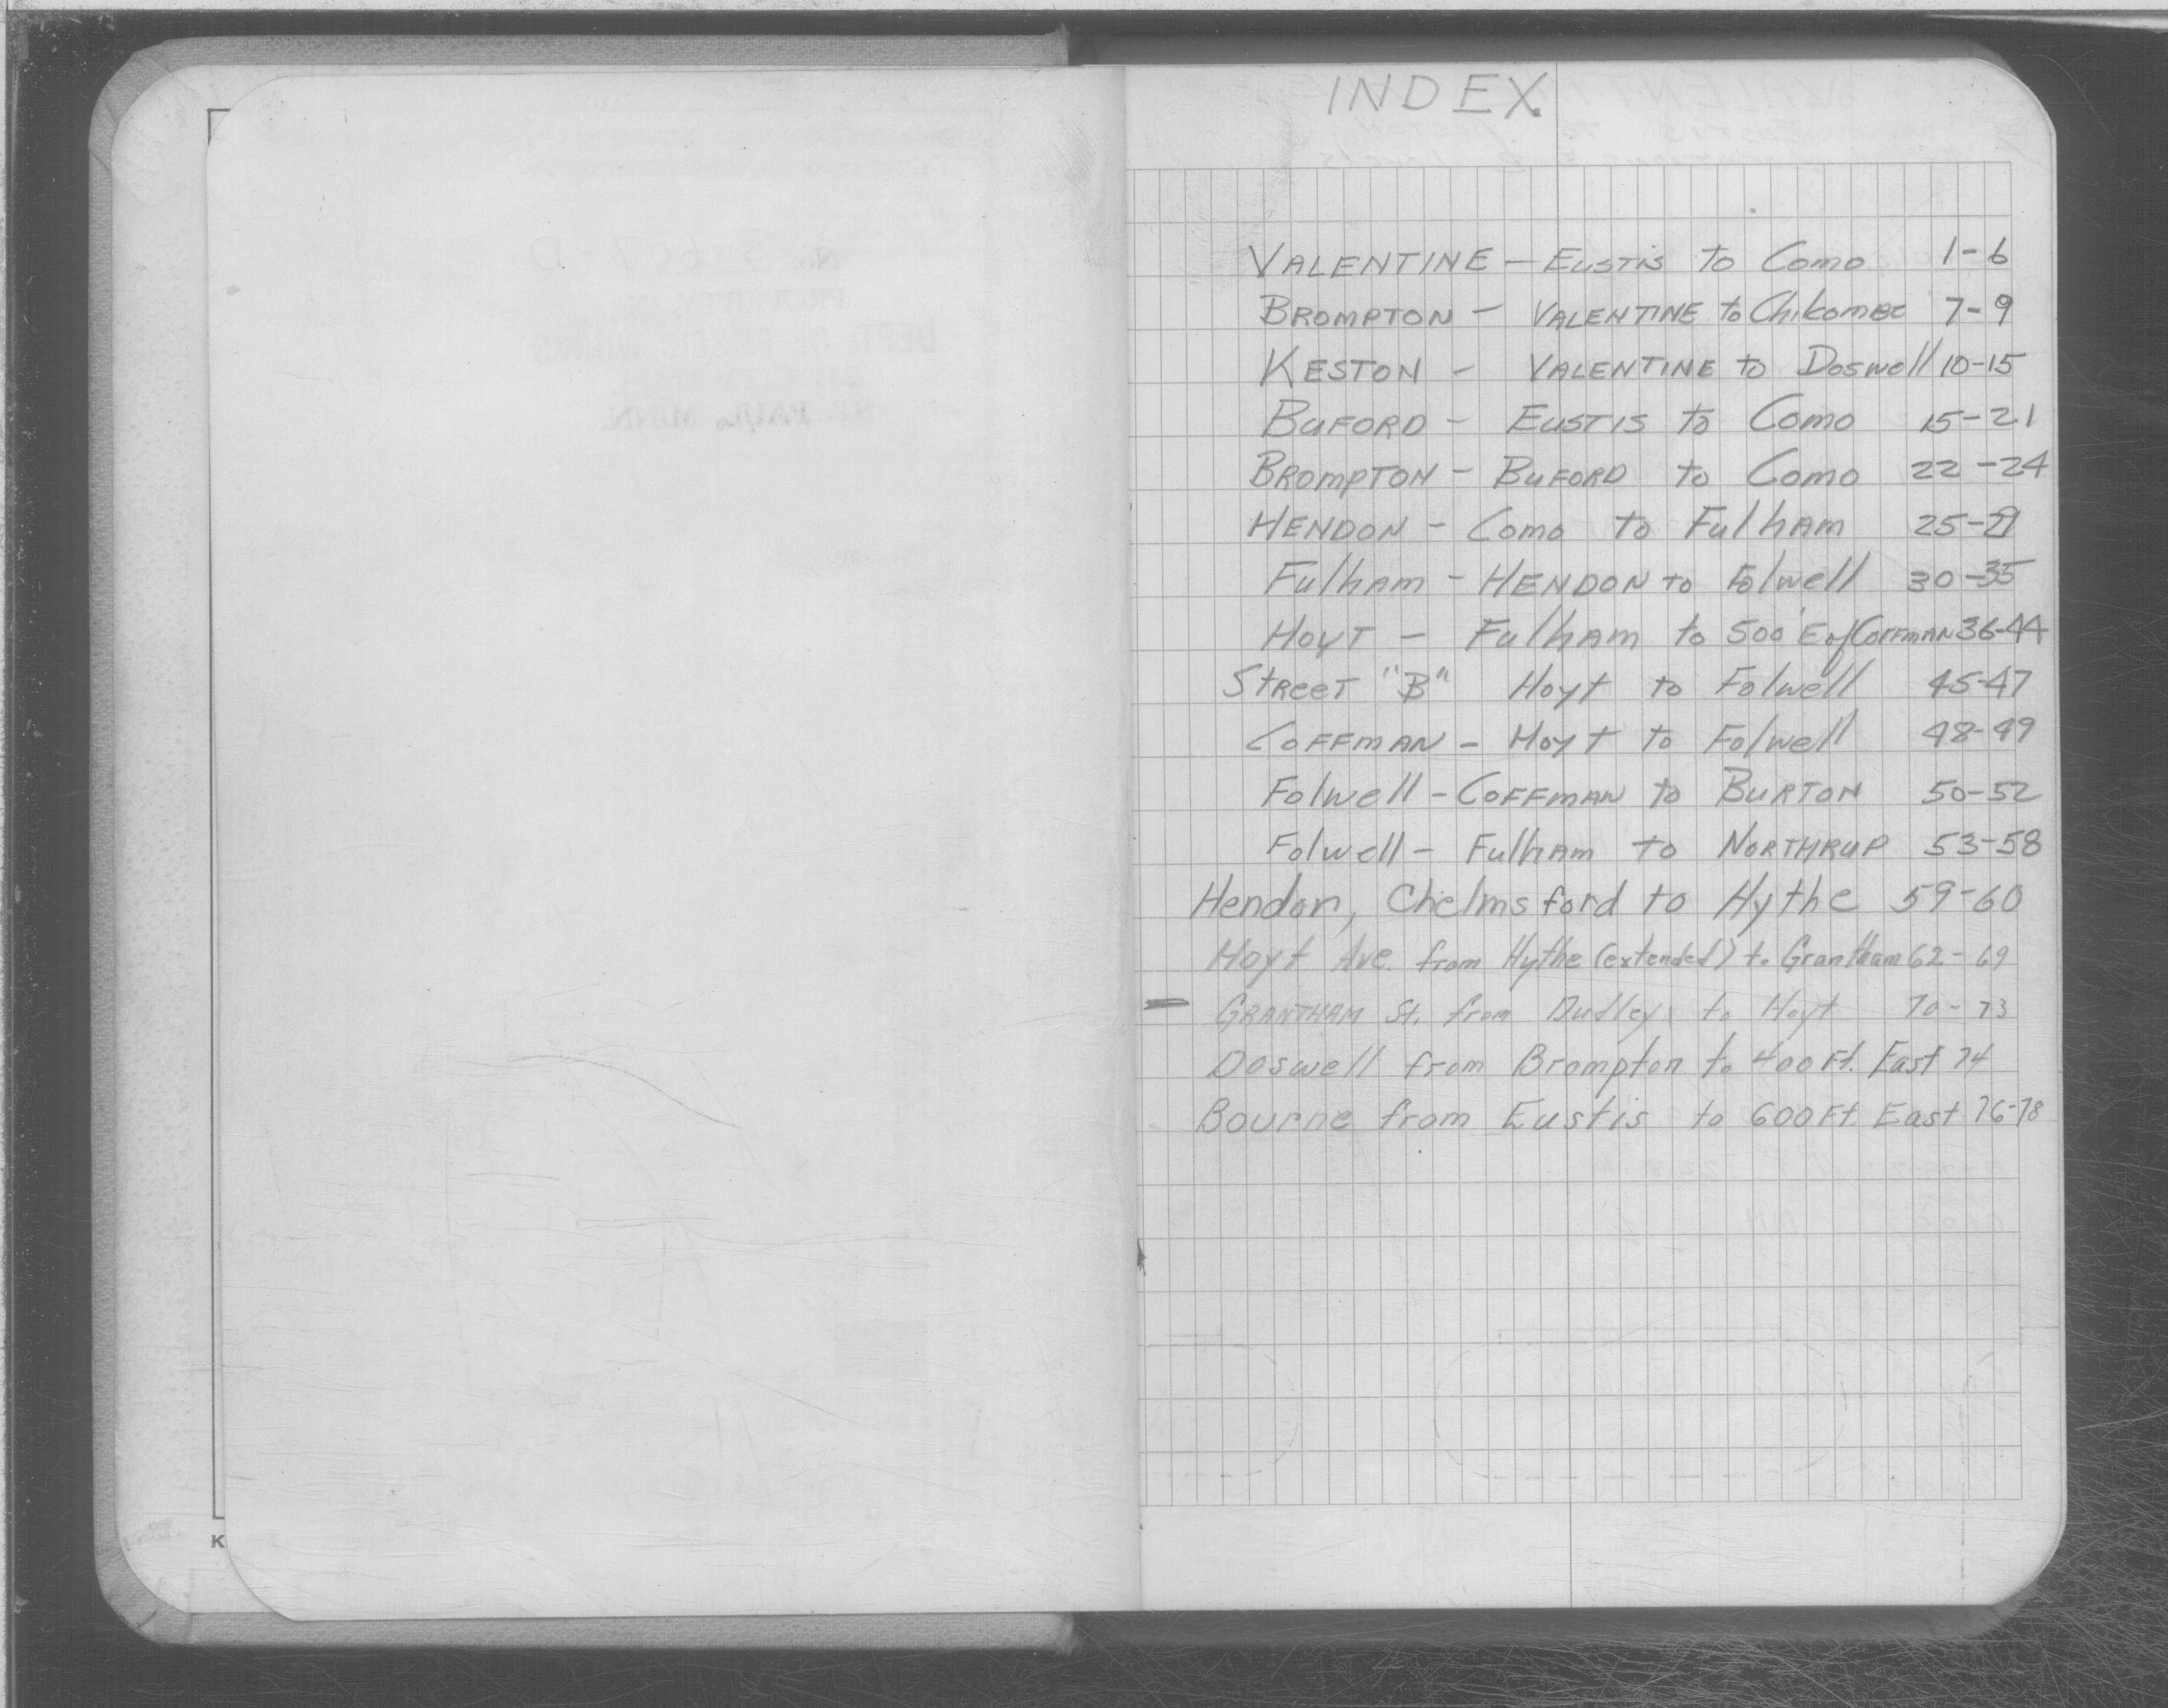 INDEX
VALENTINE - EUSTIS to Como 1-6
BROMPTON - VALENTINE to Chilcombe 7-9
KESTON - VALENTINE to Doswell 10-15
BUFORD - EUSTIS to Como 15-21
BROMPTON - BUFORD to Como 22-24
HENDON - Como to FulhAm 25-
Fulham - HENDON to Folwell 30-35
HOYT - FulhAm to 500' E of COFFMAN 36-44
StReeT "B" Hoyt to Folwell 45-47
COFFMAN - Hoyt to Folwell 48-49
Folwell - COFFMAN to BURTON 50-52
Folwell - FulhAm to NORTHRUP 53-58
Hendon, Chelmsford to Hythe 59-60
Hoyt Ave. from Hythe (extended) to Grantham 62-69
GRANTHAM St. from Dudley to Hoyt 70-73
Doswell from Brompton to 400 Ft. East 74
Bourne from Eustis to 600 Ft. East 76-78
K